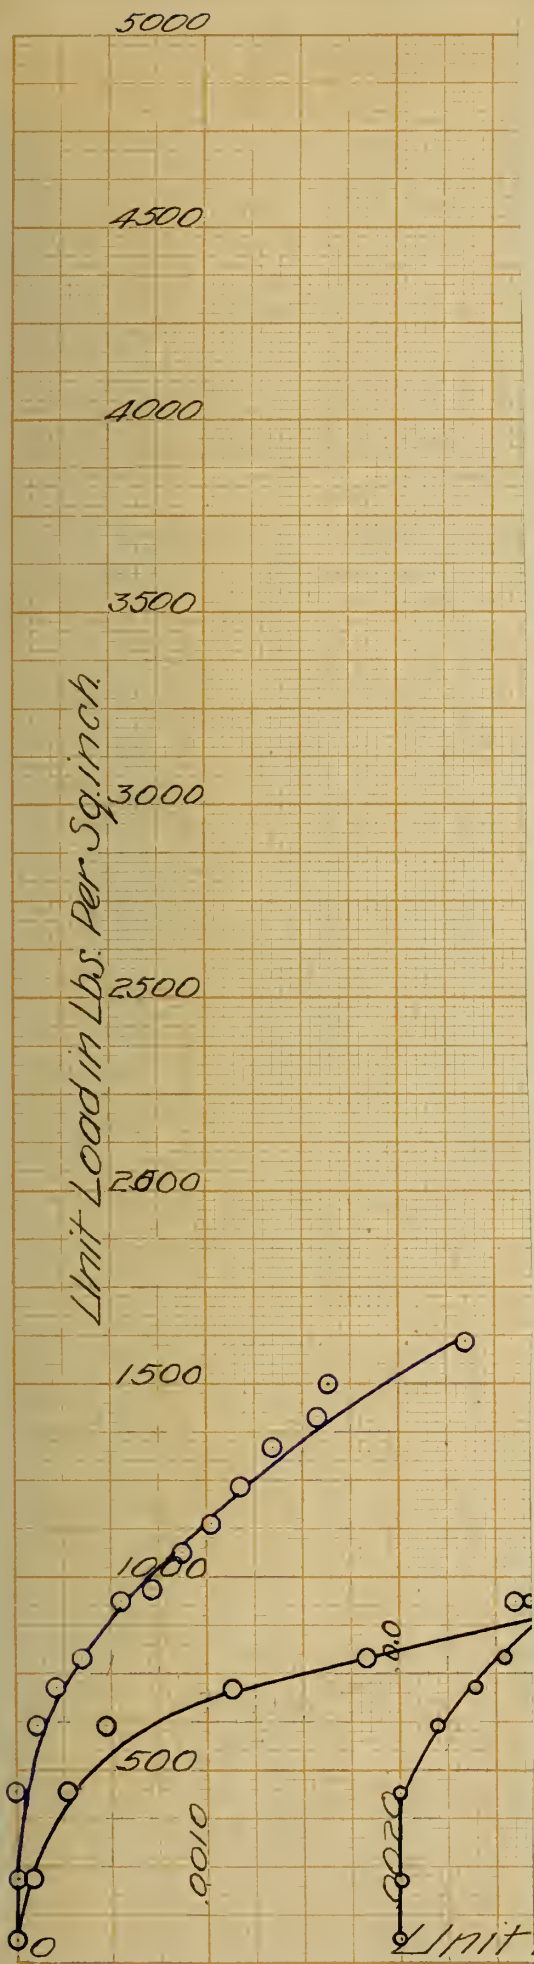 5000
4500
4000
3500
3000
2500
2000
1500
1000
500
0
Unit Load in Lbs. Per Sq.inch.
.0010
.0020
0.0
Unit